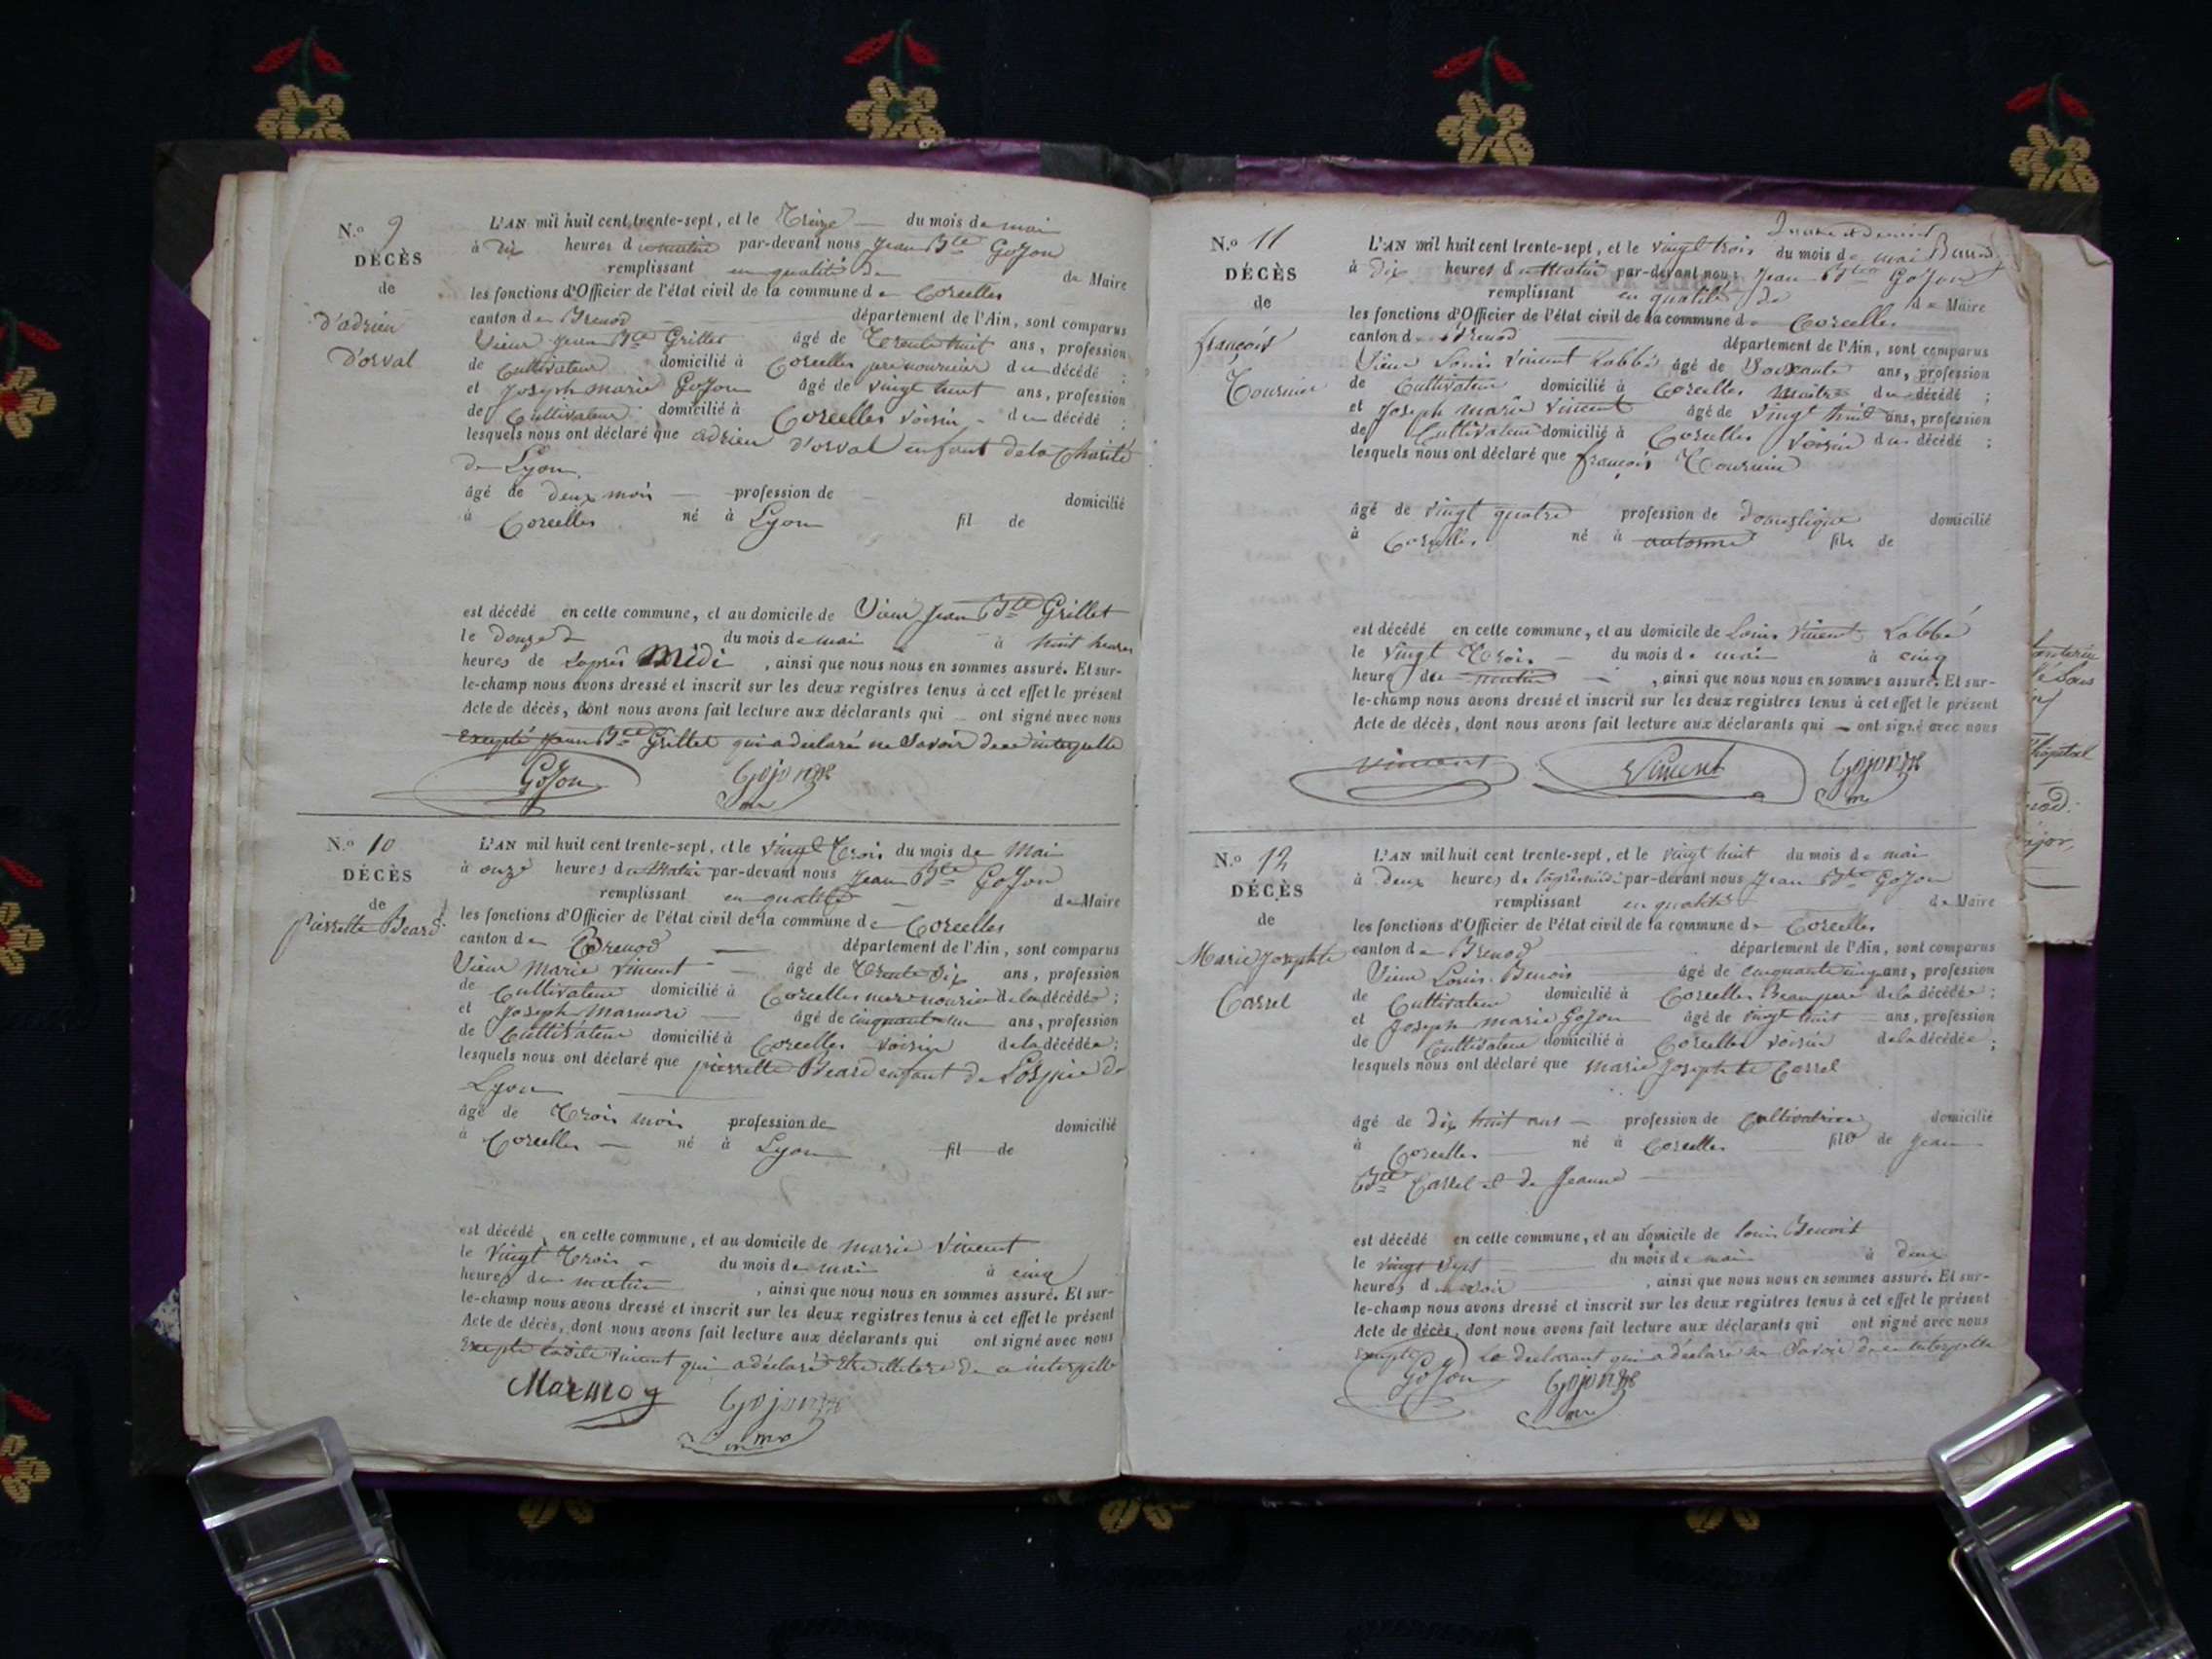 N.º 9
DÉCÈS
de
d'adrien
D'orval
L'AN mil huit cent trente-sept, et le Treize du mois de mai
à dix heures du matin par-devant nous Jean Bte Gojon
remplissant en qualité de de Maire
les fonctions d'Officier de l'état civil de la commune de Corcelles
canton de Brenod département de l'Ain, sont comparus
Sieur Jean Bte Grillet âgé de Trente huit ans, profession
de Cultivateur domicilié à Corcelles pere nourricier du décédé ;
et Joseph marie Gojon âgé de vingt huit ans, profession
de Cultivateur domicilié à Corcelles voisin du décédé ;
lesquels nous ont déclaré que adrien D'orval enfant de la Charité
de Lyon
âgé de deux mois profession de domicilié
à Corcelles né à Lyon fil de
est décédé en cette commune, et au domicile de Sieur Jean Bte Grillet
le douze du mois de mai à huit heures
heures de Laprès Midi, ainsi que nous nous en sommes assuré. Et sur-
le-champ nous avons dressé et inscrit sur les deux registres tenus à cet effet le présent
Acte de décès, dont nous avons fait lecture aux déclarants qui ont signé avec nous
Excepté Jean Bte Grillet qui a déclaré ne Savoir de ce interpellé
Gojon Gojon
N.º 10
DÉCÈS
de
pierrette Beard
L'AN mil huit cent trente-sept, et le vingt Trois du mois de Mai
à onze heures du Matin par-devant nous Jean Bte Gojon
remplissant en qualité de Maire
les fonctions d'Officier de l'état civil de la commune de Corcelles
canton de Brenod département de l'Ain, sont comparus
Sieur Marie Vincent âgé de Trente Six ans, profession
de Cultivateur domicilié à Corcelles de la décédée ;
et Joseph Marmori âgé de cinquante un ans, profession
de Cultivateur domicilié à Corcelles voisin de la décédée ;
lesquels nous ont déclaré que pierrette Beard enfant de de
Lyon
âgé de Trois mois profession de domicilié
à Corcelles né à Lyon fil de
est décédé en cette commune, et au domicile de marie Vincent
le Vingt Trois du mois de mai à cinq
heures du matin, ainsi que nous nous en sommes assuré. Et sur-
le-champ nous avons dressé et inscrit sur les deux registres tenus à cet effet le présent
Acte de décès, dont nous avons fait lecture aux déclarants qui ont signé avec nous
Excepté Ladite Vincent qui a déclaré de ce interpellé
Gojon
N.º 11
DÉCÈS
de
françois
Tournier
L'AN mil huit cent trente-sept, et le vingt trois du mois de mai
à dix heures du Matin par-devant nous Jean Bte Gojon
remplissant en qualité de de Maire
les fonctions d'Officier de l'état civil de la commune de Corcelles
canton de Brenod département de l'Ain, sont comparus
Sieur Louis Vincent Labbé âgé de Soixante ans, profession
de Cultivateur domicilié à Corcelles Maître du décédé ;
et Joseph marie Vincent âgé de Vingt huit ans, profession
de Cultivateur domicilié à Corcelles voisin du décédé ;
lesquels nous ont déclaré que françois Tournier
âgé de vingt quatre profession de Domestique domicilié
à Corcelles né à fils de
est décédé en cette commune, et au domicile de Louis Vincent Labbé
le Vingt Trois du mois de mai à cinq
heures du matin, ainsi que nous nous en sommes assuré. Et sur-
le-champ nous avons dressé et inscrit sur les deux registres tenus à cet effet le présent
Acte de décès, dont nous avons fait lecture aux déclarants qui ont signé avec nous
Vincent Vincent Gojon
N.º 12
DÉCÈS
de
Marie Josephte
Carrel
L'AN mil huit cent trente-sept, et le vingt huit du mois de mai
à Deux heures de l'après midi par-devant nous Jean Bte Gojon
remplissant en qualité de Maire
les fonctions d'Officier de l'état civil de la commune de Corcelles
canton de Brenod département de l'Ain, sont comparus
Sieur Louis Benoit âgé de cinquante cinq ans, profession
de Cultivateur domicilié à Corcelles Beau pere de la décédée ;
et Joseph marie Gojon âgé de vingt huit ans, profession
de Cultivateur domicilié à Corcelles voisin de la décédée ;
lesquels nous ont déclaré que marie Josephte Carrel
âgé de dix huit ans profession de Cultivatrice domicilié
à Corcelles né à Corcelles fille de Jean
Bte Carrel et de Jeanne
est décédé en cette commune, et au domicile de Louis Benoit
le vingt Sept du mois de mai à deux
heures du soir, ainsi que nous nous en sommes assuré. Et sur-
le-champ nous avons dressé et inscrit sur les deux registres tenus à cet effet le présent
Acte de décès, dont nous avons fait lecture aux déclarants qui ont signé avec nous
Excepté Le déclarant qui a déclaré ne Savoir de ce Interpellé
Gojon Gojon